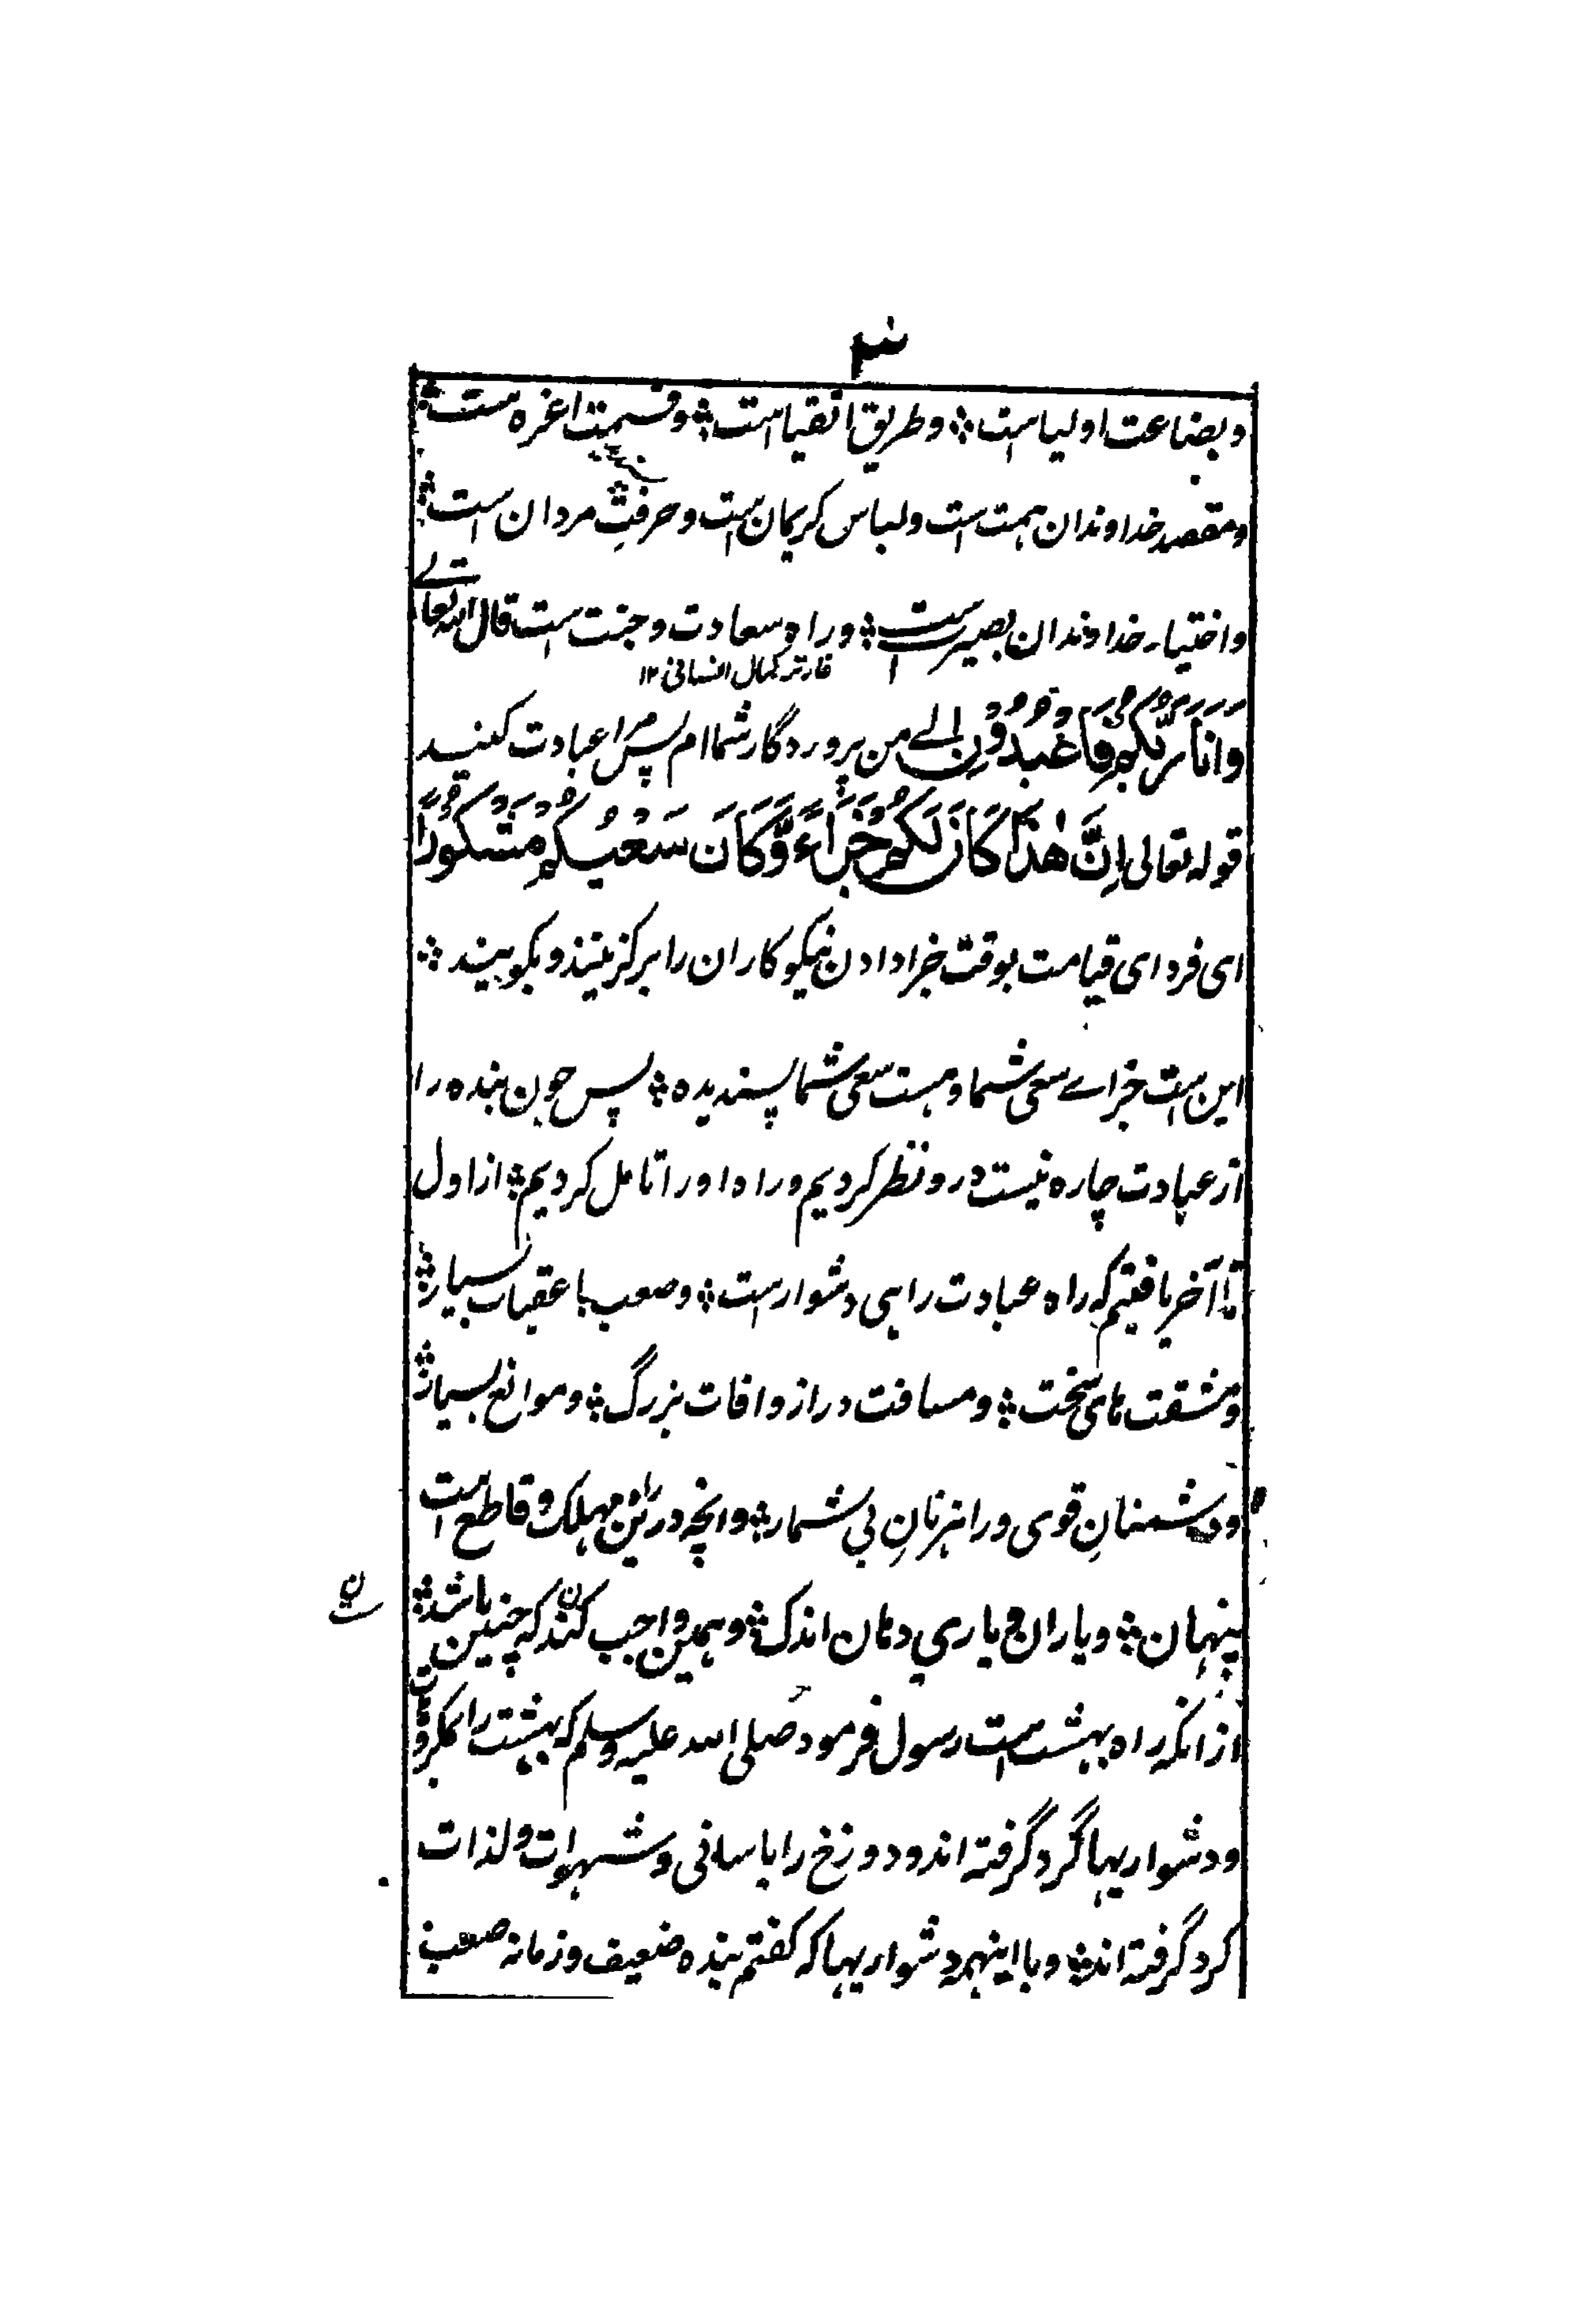 ۳
وبضاعت اولیاست؞ وطریق اتقیااست؞ وقسمت اعزه است؞
ومقصد خداوندان همت است ولباس کریمان است وحرفتِ مردان است؞
واختیار خداوندان بصیرت است؞ وراه سعادت وجنت است قال الله تعالے
وَاَنَا رَبُّكُمْ فَاعْبُدُوْنِ اے من پروردگار شما ام پس مرا عبادت کنید
قوله تعالی اِنَّ هٰذَا كَانَ لَكُمْ جَزَآءً وَّكَانَ سَعْيُكُمْ مَشْكُوْرًا
ای فردای قیامت بوقت جزا دادن نیکوکاران را برکزینند وبکویند؞
این است جزاے سعی شما وهست سعی شما پسندیده؞ پس چون بنده را
از عبادت چاره نیست درو نظر کردیم وراه اورا تامل کردیم؞ از اول
تا آخر یافتیم که راه عبادت راهی دشوار است؞ وصعب با عقبات بسیار؞
ومشقت های سخت؞ ومسافت دراز وافات بزرگ؞ وموانع بسیار؞
ودشمنانِ قوی وراهزنانِ بی شمار؞ وانچه درین راه مهلک وقاطع است
پنهان؞ ویاران ویاری دهان اندک؞ وهمین واجب کند که چنین باشد؞
ن
از انکه راه بهشت است رسول فرمود صلی الله علیه وسلم که بهشت را بمکروهات
ودشواریها گرد گرفته اند ودوزخ را باسانی وشهوات ولذات
کرد گرفته اند؞ وبا اینهمه دشواریها که کفتم بنده ضعیف وزمانه صعب